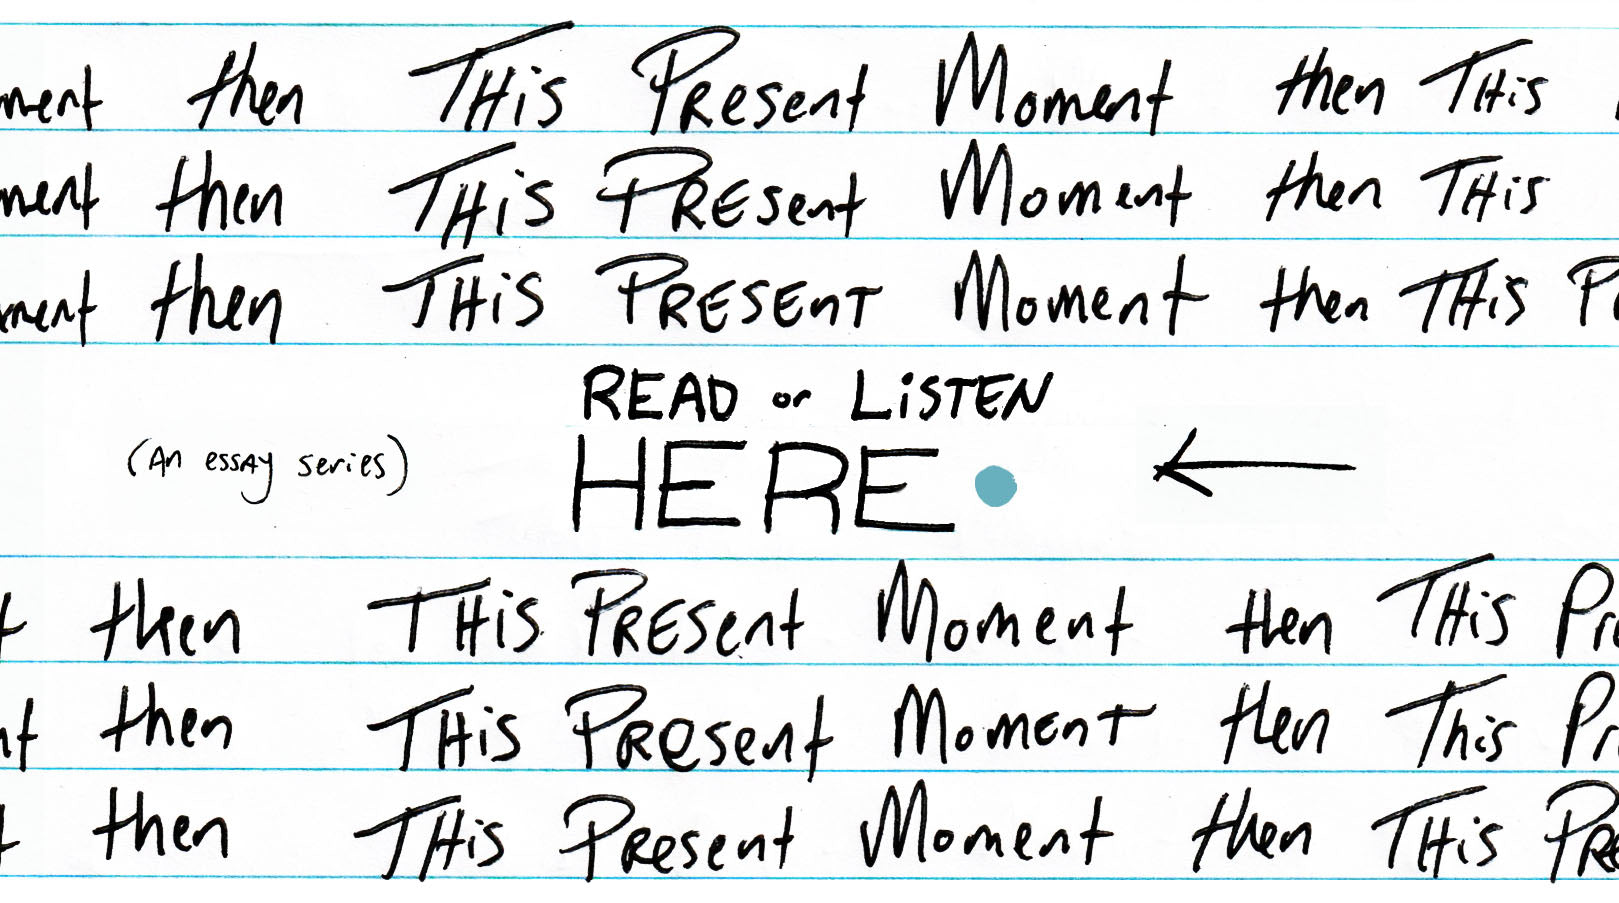 ment then THiS PResent Moment then THiS
ment then THiS PREsent Moment then THiS
ment then THiS PRESEnT Moment then THiS Pr
READ or LiSTEN
(An essay series) HERE.
t then THiS PRESent Moment then THiS Pre
nt then THiS PResent MomEnT then This Pre
t then THiS PResent Moment then THiS PRe